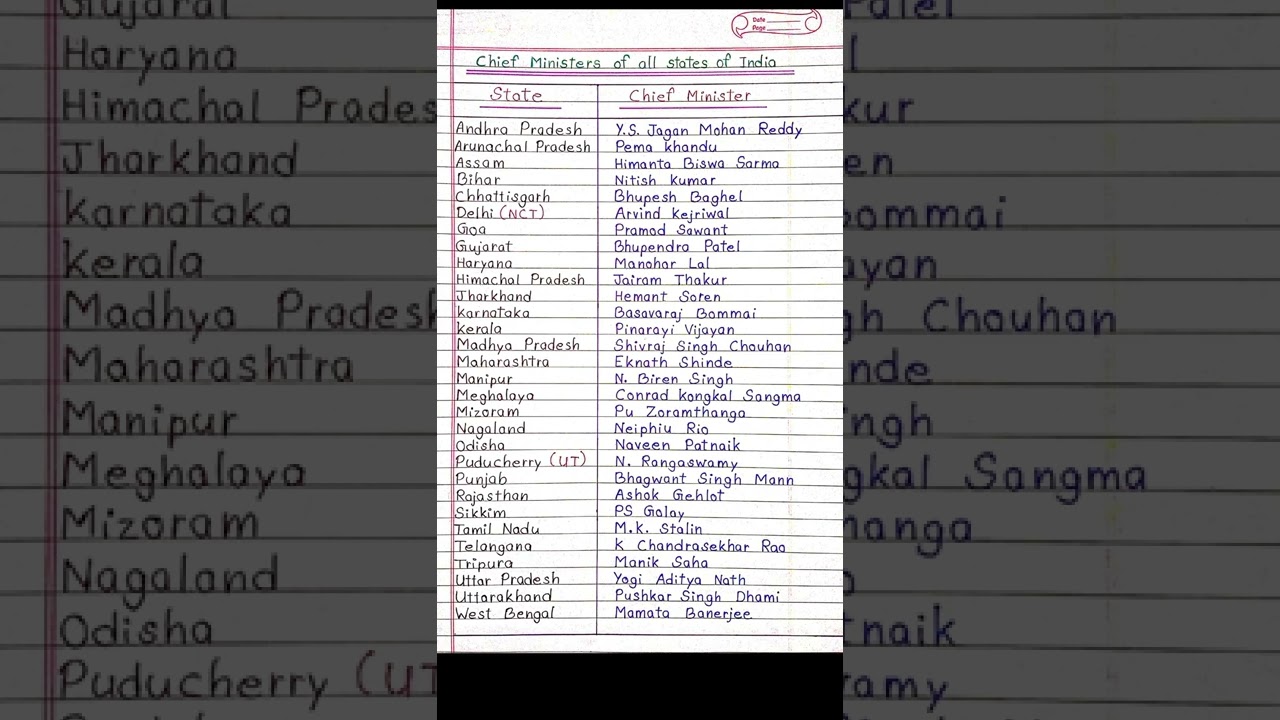 Date
Page
Chief Ministers of all states of India
State Chief Minister
Andhra Pradesh Y.S. Jagan Mohan Reddy
Arunachal Pradesh Pema khandu
Assam Himanta Biswa Sarma
Bihar Nitish Kumar
Chhattisgarh Bhupesh Baghel
Delhi (NCT) Arvind Kejriwal
Goa Pramod Sawant
Gujarat Bhupendra Patel
Haryana Manohar Lal
Himachal Pradesh Jairam Thakur
Jharkhand Hemant Soren
Karnataka Basavaraj Bommai
Kerala Pinarayi Vijayan
Madhya Pradesh Shivraj Singh Chouhan
Maharashtra Eknath Shinde
Manipur N. Biren Singh
Meghalaya Conrad Kongkal Sangma
Mizoram Pu Zoramthanga
Nagaland Neiphiu Rio
Odisha Naveen Patnaik
Puducherry (UT) N. Rangaswamy
Punjab Bhagwant Singh Mann
Rajasthan Ashok Gehlot
Sikkim PS Golay
Tamil Nadu M.K. Stalin
Telangana K Chandrasekhar Rao
Tripura Manik Saha
Uttar Pradesh Yogi Aditya Nath
Uttarakhand Pushkar Singh Dhami
West Bengal Mamata Banerjee